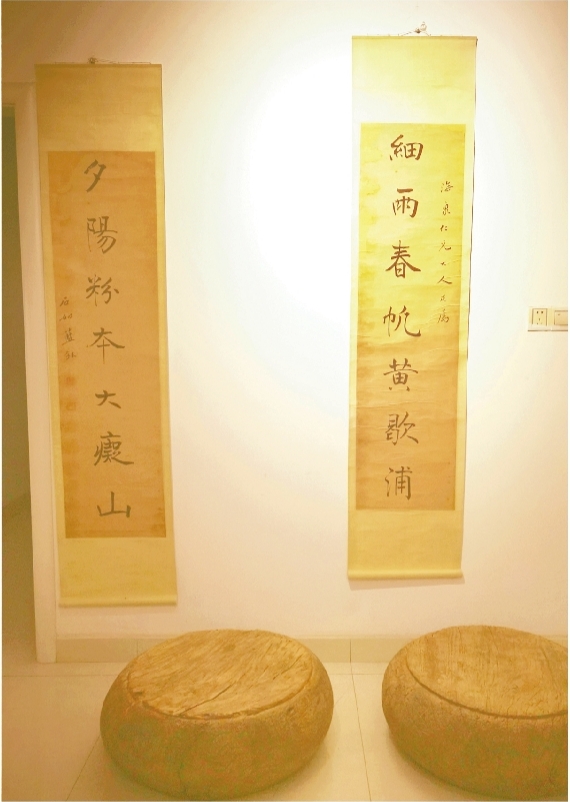 細雨春帆黄歇浦
海泉仁兄大人正
夕陽粉本大癡山